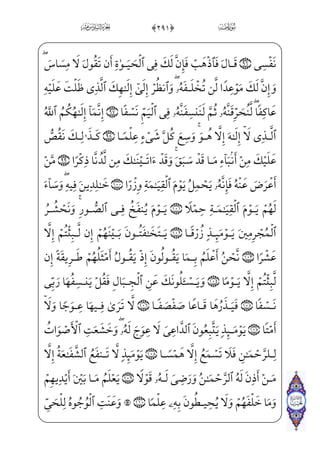 نَفْسِى ۝ قَالَ فَٱذْهَبْ فَإِنَّ لَكَ فِى ٱلْحَيَوٰةِ أَن تَقُولَ لَا مِسَاسَ ۖ
وَإِنَّ لَكَ مَوْعِدًا لَّن تُخْلَفَهُۥ ۖ وَٱنظُرْ إِلَىٰٓ إِلَٰهِكَ ٱلَّذِى ظَلْتَ عَلَيْهِ
عَاكِفًا ۖ لَّنُحَرِّقَنَّهُۥ ثُمَّ لَنَنسِفَنَّهُۥ فِى ٱلْيَمِّ نَسْفًا ۝ إِنَّمَآ إِلَٰهُكُمُ ٱللَّهُ
ٱلَّذِى لَآ إِلَٰهَ إِلَّا هُوَ ۚ وَسِعَ كُلَّ شَىْءٍ عِلْمًا ۝ كَذَٰلِكَ نَقُصُّ
عَلَيْكَ مِنْ أَنۢبَآءِ مَا قَدْ سَبَقَ ۚ وَقَدْ ءَاتَيْنَٰكَ مِن لَّدُنَّا ذِكْرًا ۝ مَّنْ
أَعْرَضَ عَنْهُ فَإِنَّهُۥ يَحْمِلُ يَوْمَ ٱلْقِيَٰمَةِ وِزْرًا ۝ خَٰلِدِينَ فِيهِ ۖ وَسَآءَ
لَهُمْ يَوْمَ ٱلْقِيَٰمَةِ حِمْلًا ۝ يَوْمَ يُنفَخُ فِى ٱلصُّورِ ۚ وَنَحْشُرُ
ٱلْمُجْرِمِينَ يَوْمَئِذٍ زُرْقًا ۝ يَتَخَٰفَتُونَ بَيْنَهُمْ إِن لَّبِثْتُمْ إِلَّا
عَشْرًا ۝ نَّحْنُ أَعْلَمُ بِمَا يَقُولُونَ إِذْ يَقُولُ أَمْثَلُهُمْ طَرِيقَةً إِن
لَّبِثْتُمْ إِلَّا يَوْمًا ۝ وَيَسْـَٔلُونَكَ عَنِ ٱلْجِبَالِ فَقُلْ يَنسِفُهَا رَبِّى
نَسْفًا ۝ فَيَذَرُهَا قَاعًا صَفْصَفًا ۝ لَّا تَرَىٰ فِيهَا عِوَجًا وَلَآ
أَمْتًا ۝ يَوْمَئِذٍ يَتَّبِعُونَ ٱلدَّاعِىَ لَا عِوَجَ لَهُۥ ۖ وَخَشَعَتِ ٱلْأَصْوَاتُ
لِلرَّحْمَٰنِ فَلَا تَسْمَعُ إِلَّا هَمْسًا ۝ يَوْمَئِذٍ لَّا تَنفَعُ ٱلشَّفَٰعَةُ إِلَّا
مَنْ أَذِنَ لَهُ ٱلرَّحْمَٰنُ وَرَضِىَ لَهُۥ قَوْلًا ۝ يَعْلَمُ مَا بَيْنَ أَيْدِيهِمْ
وَمَا خَلْفَهُمْ وَلَا يُحِيطُونَ بِهِۦ عِلْمًا ۝ ۞ وَعَنَتِ ٱلْوُجُوهُ لِلْحَىِّ